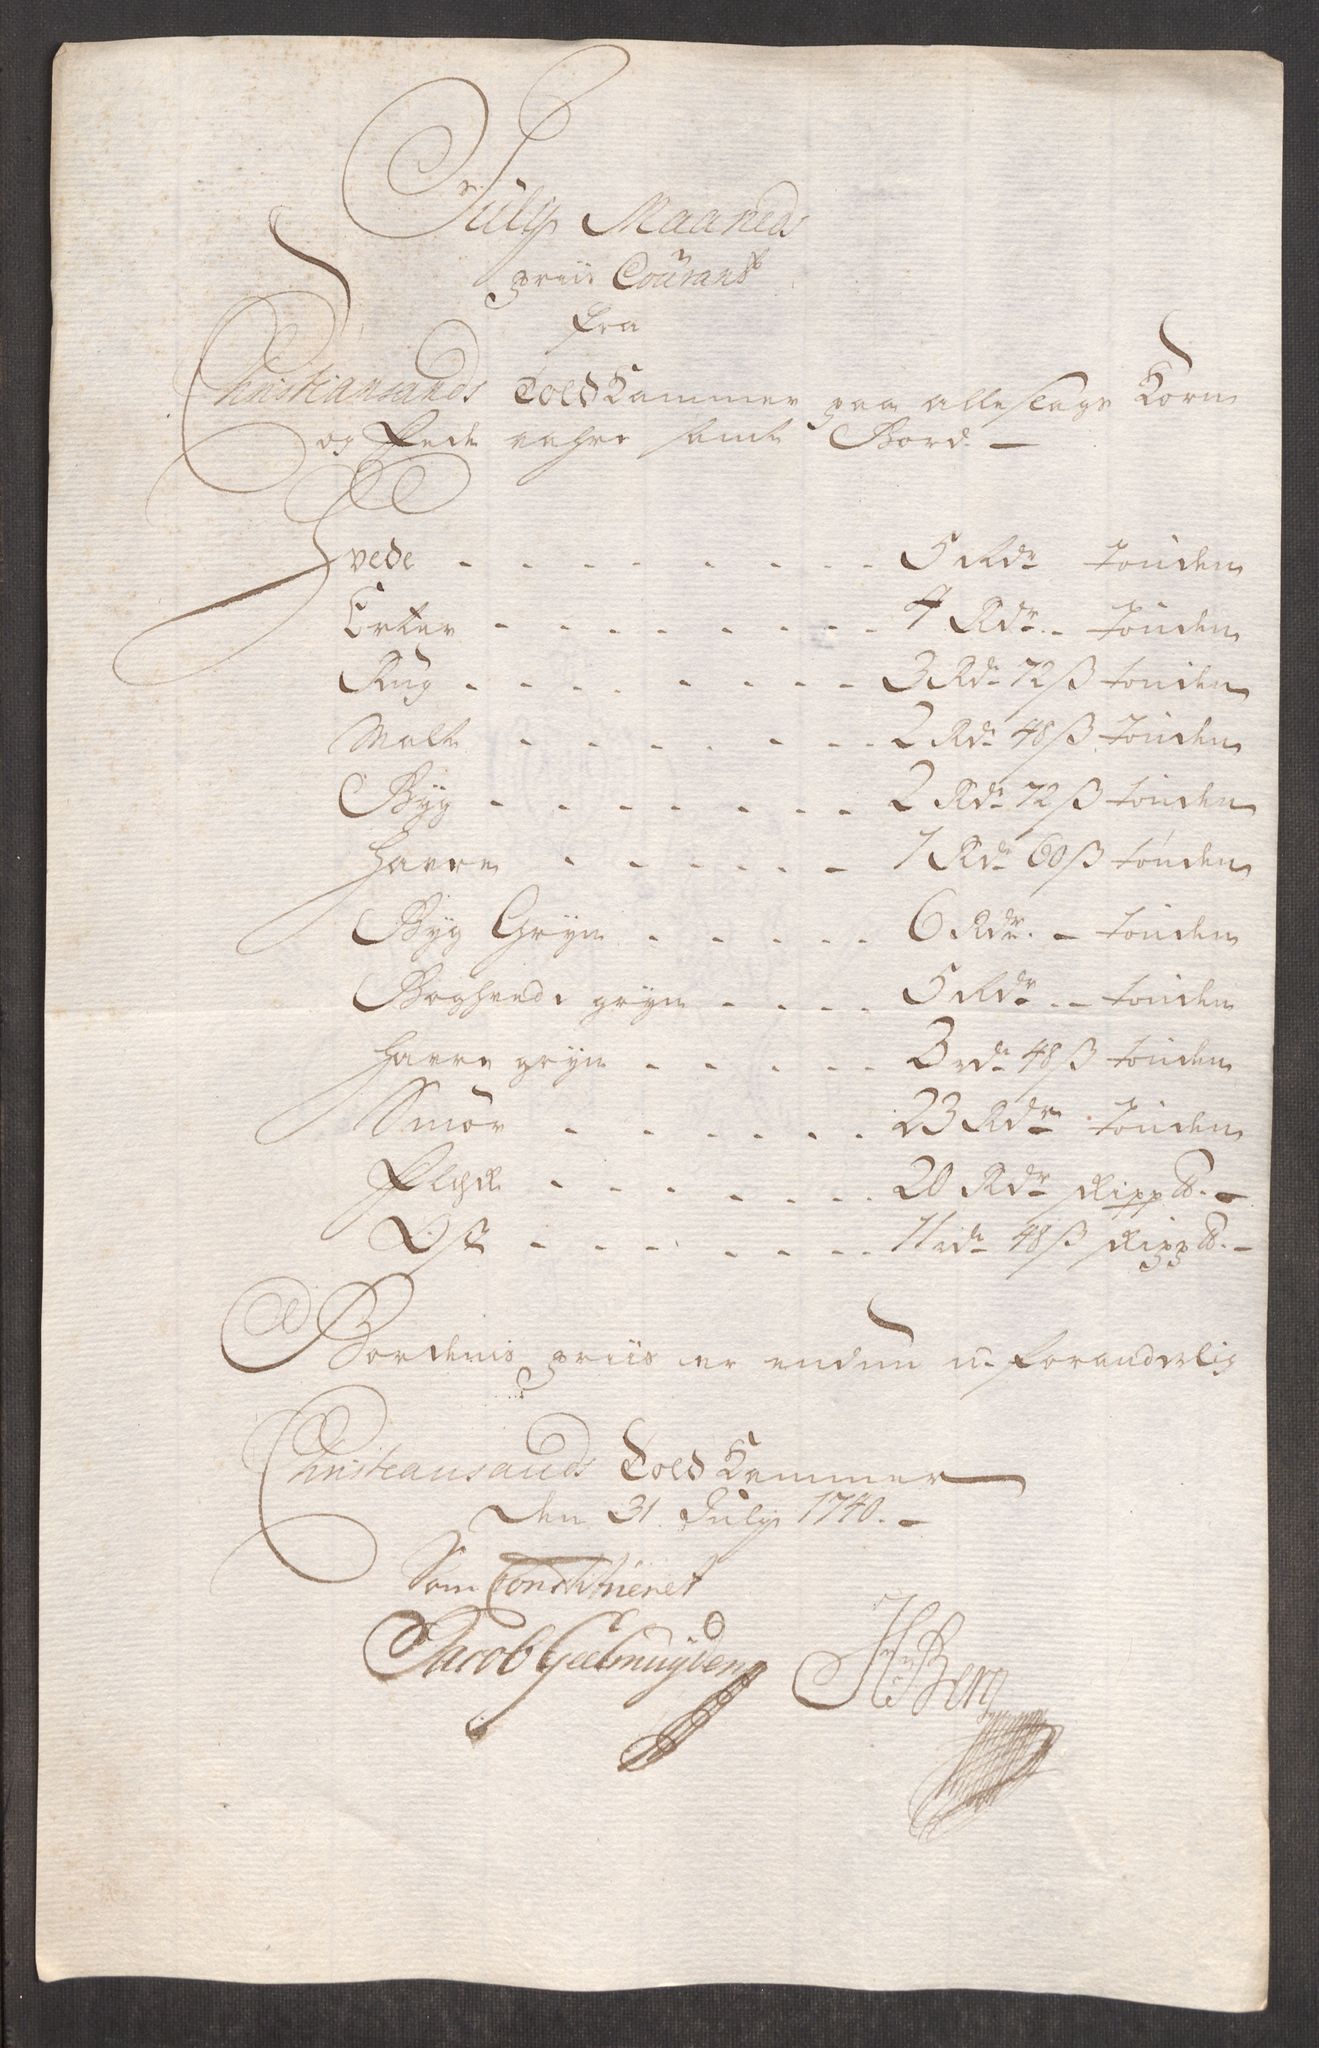 July Maaneds
priis Courant
fra
Christiansands Told Kammer paa alle slags Korn
og fede vahre samt Bord. —
Hvede - - - - - - - - 5 Rdr tönden
Erter - - - - - - - - 4 Rdr. - tönden
Rug - - - - - - - - 3 Rdr 72 ß tönden
Malt - - - - - - - 2 Rdr 48 ß tönden
Byg - - - - - - - 2 Rdr 72 ß tönden
Havre - - - - - 1 Rdr 60 ß tönden
Byg Gryn - - - - - 6 Rdr. - tönden
Boghvede gryn - - - - 5 Rdr. - tönden
Havre gryn - - - - - 3 rdr 48 ß tönden
Smör - - - - - - 23 Rdr tönden
Flesk - - - - - - - 20 Rdr skipp℔. -
Ost - - - - - - - 11 rdr 48 ß skipp℔. -
Bordenis priis er endnu u-foranderlig
Christiansands Told Kammer
den 31 July 1740. -
Som Constitueret
Jacob Geelmuyden H Berg